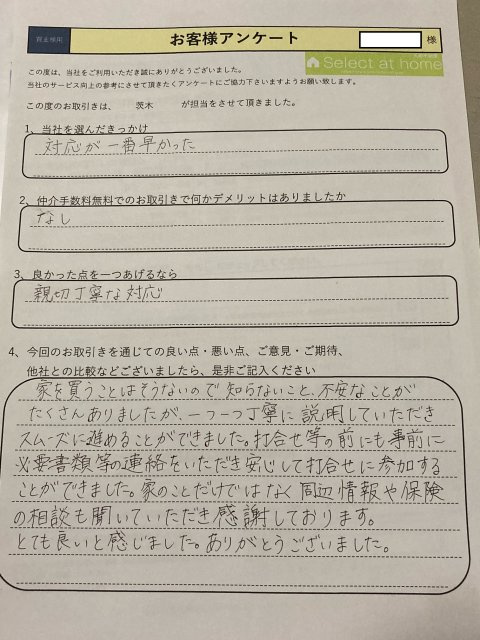 買主様用
お客様アンケート
様
Select at home
この度は、当社をご利用いただき誠にありがとうございました。
当社のサービス向上の参考にさせて頂きたくアンケートにご協力下さいますようお願い致します。
この度のお取引きは、 茨木 が担当をさせて頂きました。
1、当社を選んだきっかけ
対応が一番早かった
2、仲介手数料無料でのお取引きで何かデメリットはありましたか
なし
3、良かった点を一つあげるなら
親切丁寧な対応
4、今回のお取引きを通じての良い点・悪い点、ご意見・ご期待、
他社との比較などございましたら、是非ご記入ください
家を買うことはそうないので知らないこと、不安なことが
たくさんありましたが、一つ一つ丁寧に説明していただき
スムーズに進めることができました。打合せ等の前にも事前に
必要書類等の連絡をいただき安心して打合せに参加する
ことができました。家のことだけではなく周辺情報や保険
の相談も聞いていただき感謝しております。
とても良いと感じました。ありがとうございました。